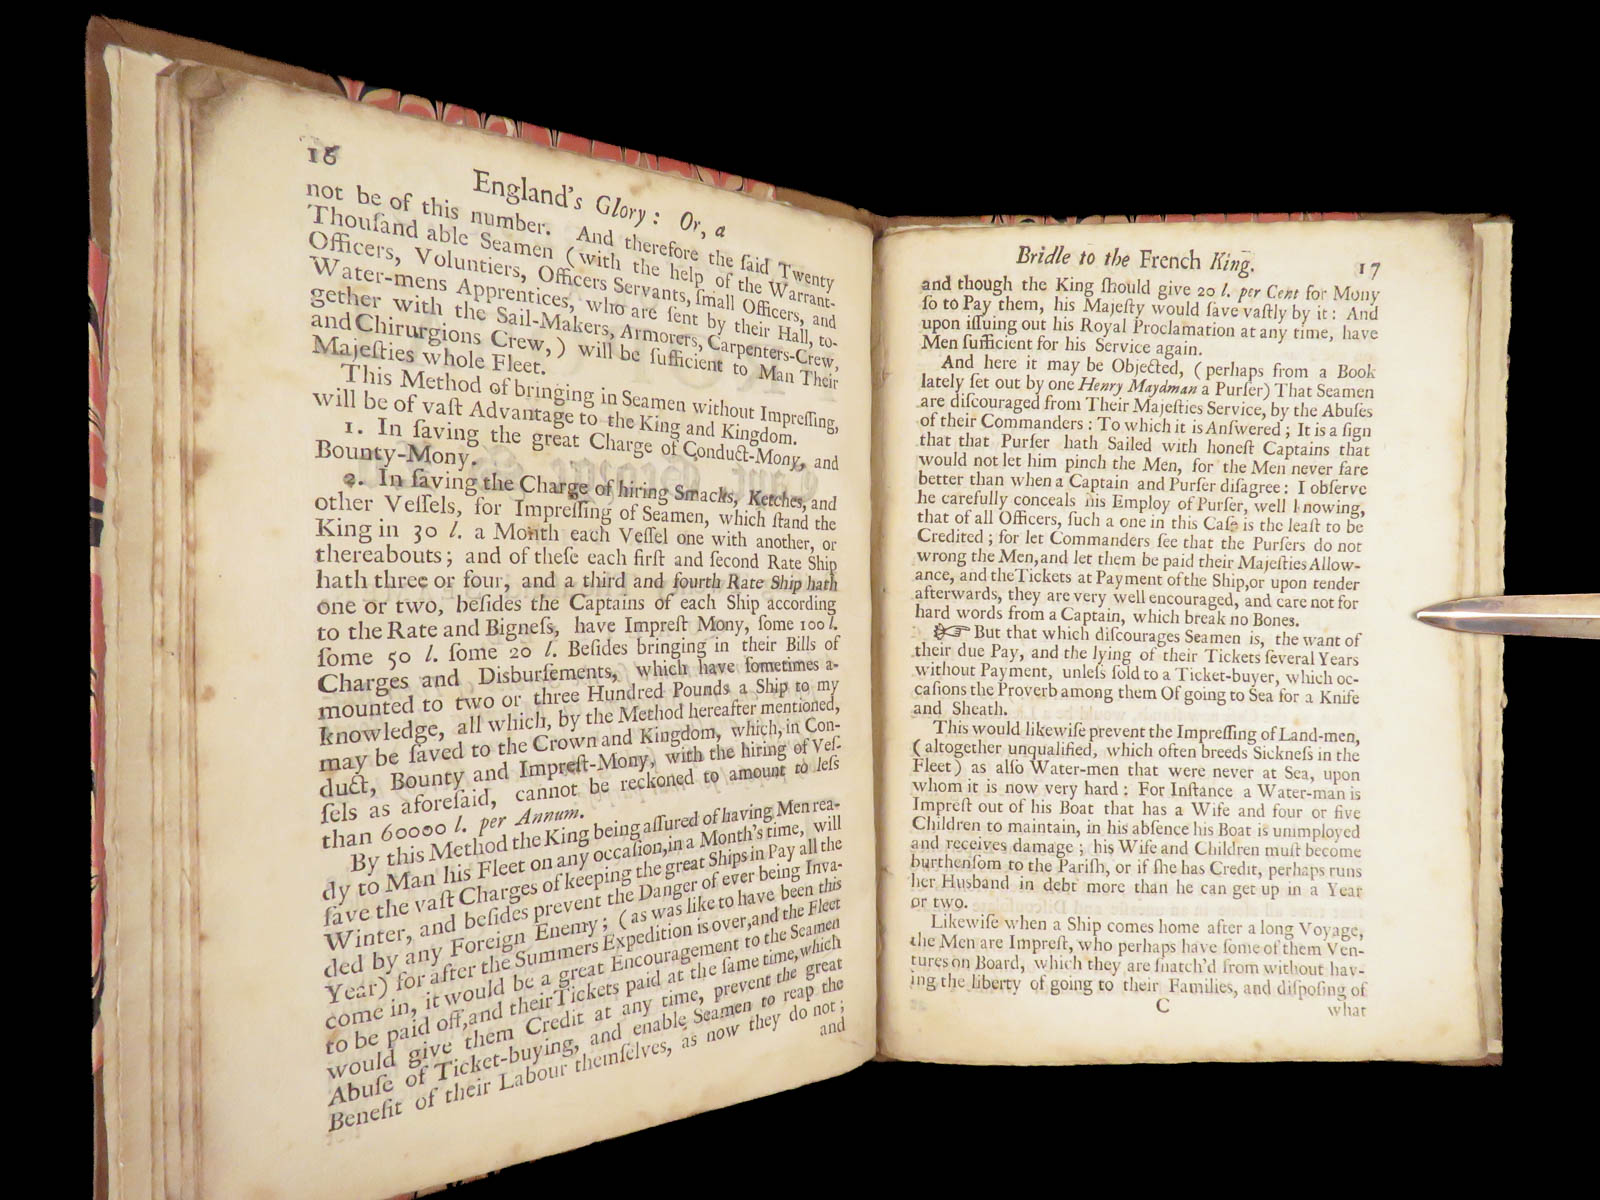 16
England's Glory: Or, a
not be of this number. And therefore the ſaid Twenty
Thouſand able Seamen (with the help of the Warrant-
Officers, Voluntiers, Officers Servants, ſmall Officers, and
Water-mens Apprentices, who are ſent by their Hall, to-
gether with the Sail-Makers, Armorers, Carpenters-Crew,
and Chirurgions Crew,) will be ſufficient to Man Their
Majeſties whole Fleet.
This Method of bringing in Seamen without Impreſſing,
will be of vaſt Advantage to the King and Kingdom.
1. In ſaving the great Charge of Conduct-Mony, and
Bounty-Mony.
2. In ſaving the Charge of hiring Smacks, Ketches, and
other Veſſels, for Impreſſing of Seamen, which ſtand the
King in 30 l. a Month each Veſſel one with another, or
thereabouts; and of theſe each firſt and ſecond Rate Ship
hath three or four, and a third and fourth Rate Ship hath
one or two, beſides the Captains of each Ship according
to the Rate and Bigneſs, have Impreſt Mony, ſome 100 l.
ſome 50 l. ſome 20 l. Beſides bringing in their Bills of
Charges and Disburſements, which have ſometimes a-
mounted to two or three Hundred Pounds a Ship to my
knowledge, all which, by the Method hereafter mentioned,
may be ſaved to the Crown and Kingdom, which, in Con-
duct, Bounty and Impreſt-Mony, with the hiring of Veſ-
ſels as aforeſaid, cannot be reckoned to amount to leſs
than 60000 l. per Annum.
By this Method the King being aſſured of having Men rea-
dy to Man his Fleet on any occaſion, in a Month's time, will
ſave the vaſt Charges of keeping the great Ships in Pay all the
Winter, and beſides prevent the Danger of ever being Inva-
ded by any Foreign Enemy; (as was like to have been this
Year) for after the Summers Expedition is over, and the Fleet
come in, it would be a great Encouragement to the Seamen
to be paid off, and their Tickets paid at the ſame time, which
would give them Credit at any time, prevent the great
Abuſe of Ticket-buying, and enable Seamen to reap the
Benefit of their Labour themſelves, as now they do not;
and
Bridle to the French King.
17
and though the King ſhould give 20 l. per Cent for Mony
ſo to Pay them, his Majeſty would ſave vaſtly by it: And
upon iſſuing out his Royal Proclamation at any time, have
Men ſufficient for his Service again.
And here it may be Objected, (perhaps from a Book
lately ſet out by one Henry Maydman a Purſer) That Seamen
are diſcouraged from Their Majeſties Service, by the Abuſes
of their Commanders: To which it is Anſwered; It is a ſign
that that Purſer hath Sailed with honeſt Captains that
would not let him pinch the Men, for the Men never fare
better than when a Captain and Purſer diſagree: I obſerve
he carefully conceals his Employ of Purſer, well knowing,
that of all Officers, ſuch a one in this Caſe is the leaſt to be
Credited; for let Commanders ſee that the Purſers do not
wrong the Men, and let them be paid their Majeſties Allow-
ance, and the Tickets at Payment of the Ship, or upon tender
afterwards, they are very well encouraged, and care not for
hard words from a Captain, which break no Bones.
☞ But that which diſcourages Seamen is, the want of
their due Pay, and the lying of their Tickets ſeveral Years
without Payment, unleſs ſold to a Ticket-buyer, which oc-
caſions the Proverb among them Of going to Sea for a Knife
and Sheath.
This would likewiſe prevent the Impreſſing of Land-men,
(altogether unqualified, which often breeds Sickneſs in the
Fleet) as alſo Water-men that were never at Sea, upon
whom it is now very hard: For Inſtance a Water-man is
Impreſt out of his Boat that has a Wife and four or five
Children to maintain, in his abſence his Boat is unimployed
and receives damage; his Wife and Children muſt become
burthenſom to the Pariſh, or if ſhe has Credit, perhaps runs
her Husband in debt more than he can get up in a Year
or two.
Likewiſe when a Ship comes home after a long Voyage,
the Men are Impreſt, who perhaps have ſome of them Ven-
tures on Board, which they are ſnatch'd from without hav-
ing the liberty of going to their Families, and diſpoſing of
C
what